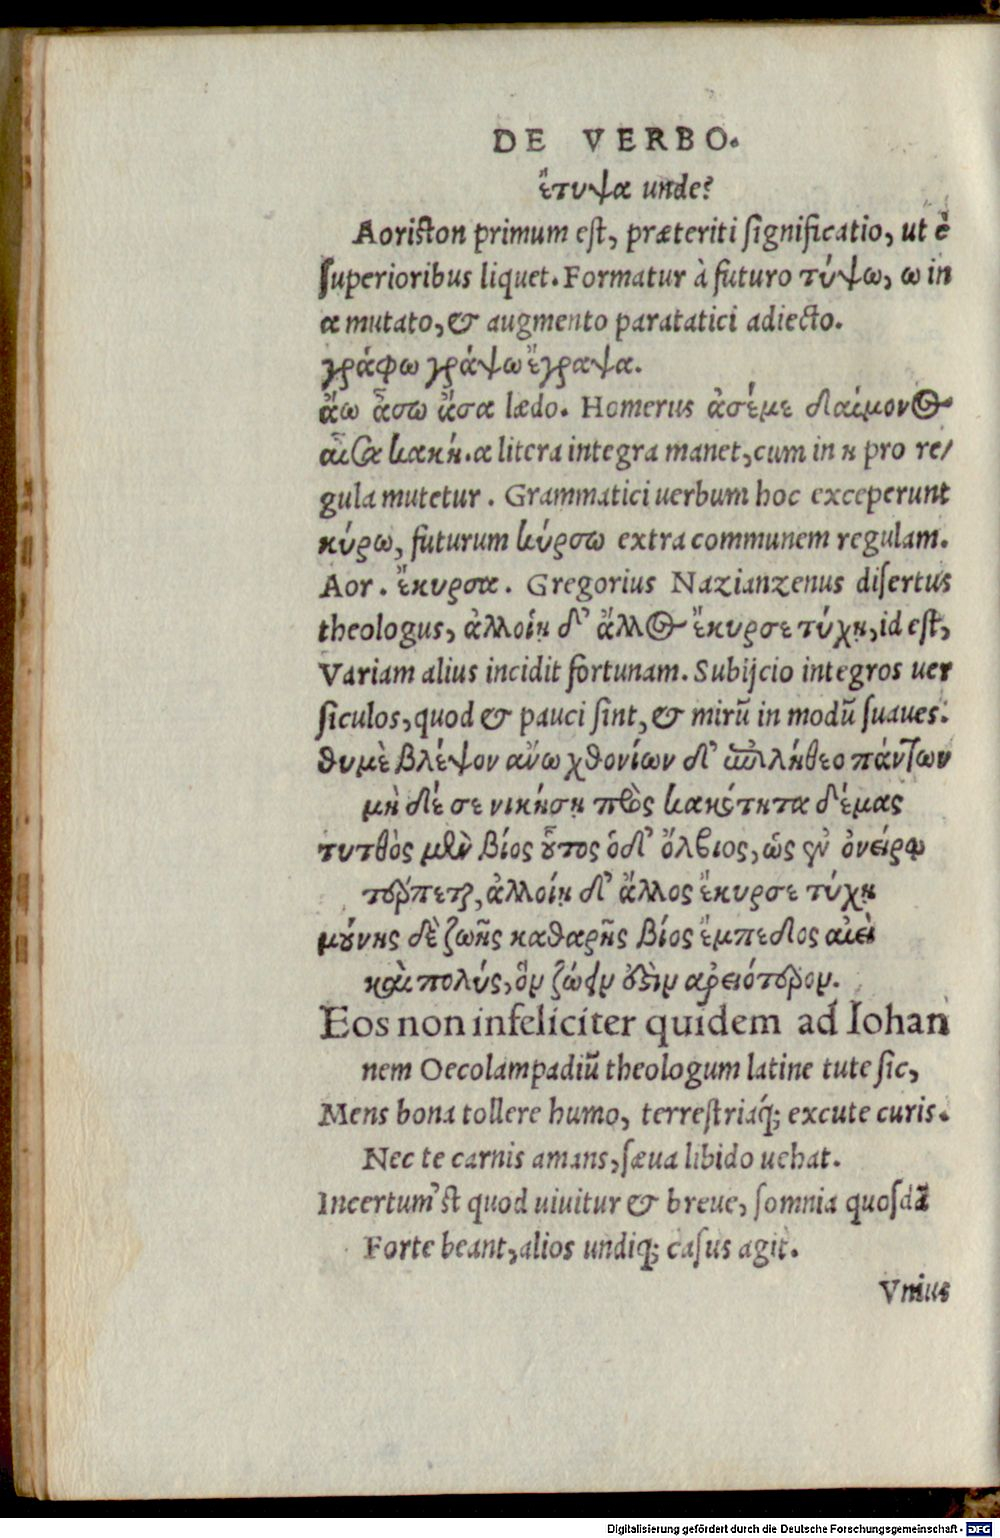 DE VERBO.
ἔτυψα unde?
Aoriston primum est, præteriti significatio, ut è
superioribus liquet. Formatur à futuro τύψω, ω in
α mutato, & augmento paratatici adiecto.
γράφω γράψω ἔγραψα.
ἄω ἄσω ἄσα lædo. Homerus ἀσέμε δαίμονος
αἶσα κακή. α litera integra manet, cum in η pro re/
gula mutetur. Grammatici uerbum hoc exceperunt
κύρω, futurum κύρσω extra communem regulam.
Aor. ἔκυρσα. Gregorius Nazianzenus disertus
theologus, ἀλλοίῃ δ' ἄλλος ἔκυρσε τύχῃ, id est,
Variam alius incidit fortunam. Subijcio integros uer
siculos, quod & pauci sint, & mirū in modū suaues.
θυμὲ βλέψον ἄνω χθονίων δ' ἐπιλήθεο πάντων
μὴ δέ σε νικήσῃ πρὸς κακότητα δέμας
τυτθὸς μὲν βίος οὗτος ὁδ' ὄλβιος, ὡς ἐν ὀνείρῳ
τέρπεται, ἀλλοίῃ δ' ἄλλος ἔκυρσε τύχῃ
μούνης δὲ ζωῆς καθαρῆς βίος ἔμπεδος αἰεὶ
καὶ πολύς, ὃν ζώειν οὐδὲν ἀρειότερον.
Eos non infeliciter quidem ad Iohan
nem Oecolampadiū theologum latine tute sic,
Mens bona tollere humo, terrestriaq; excute curis.
Nec te carnis amans, sæua libido uehat.
Incertum'st quod uiuitur & breue, somnia quosdā
Forte beant, alios undiq; casus agit.
Vnius
Digitalisierung gefördert durch die Deutsche Forschungsgemeinschaft - DFG